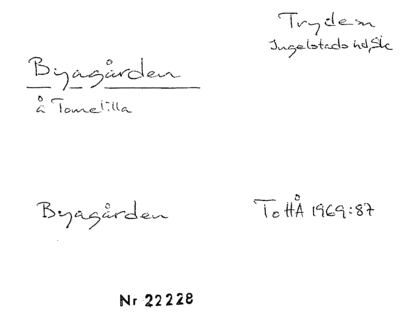 Tryde sn
Ingelstads hd, Sk
Byagården
å Tomelilla
Byagården
ToHÅ 1969:87
Nr 22228